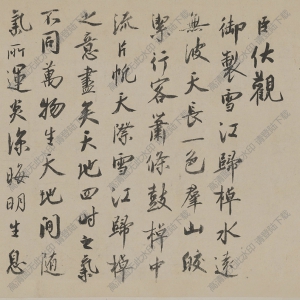 臣伏觀
御製雪江歸棹水遠
無波天長一色群山皎
潔行客蕭條鼓棹中
流片帆天際雪江歸棹
之意盡矣天地四時之氣
不同萬物生天地間隨
氣所運炎涼晦明生息